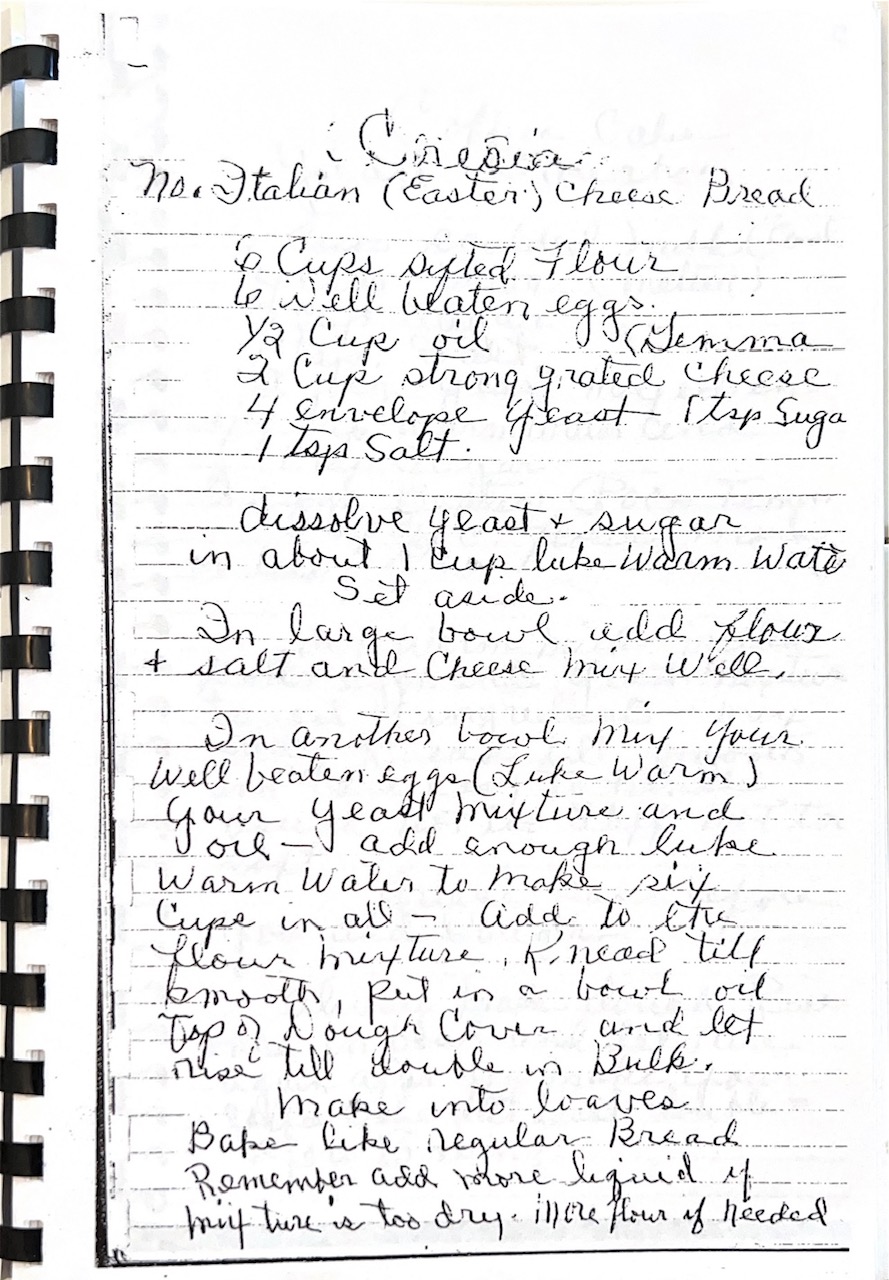 Cresia
No. Italian (Easter) Cheese Bread
6 Cups sifted Flour
6 Well beaten eggs.
1/2 Cup oil (Gemma
2 Cup strong grated cheese
4 envelope yeast - 1 tsp Suga
1 tsp Salt.
dissolve yeast + sugar
in about 1 Cup luke Warm Wate
Set aside.
In large bowl add flour
+ salt and Cheese Mix Well.
In another bowl Mix your
Well beaten eggs (Luke Warm)
your yeast Mixture and
oil - add enough luke
Warm Water to make six
Cups in all - add to the
flour mixture. Knead till
smooth, put in a bowl oil
Top of Dough Cover and let
rise till double in Bulk.
Make into loaves
Bake like regular Bread
Remember add more liquid if
mixture is too dry. More flour if needed